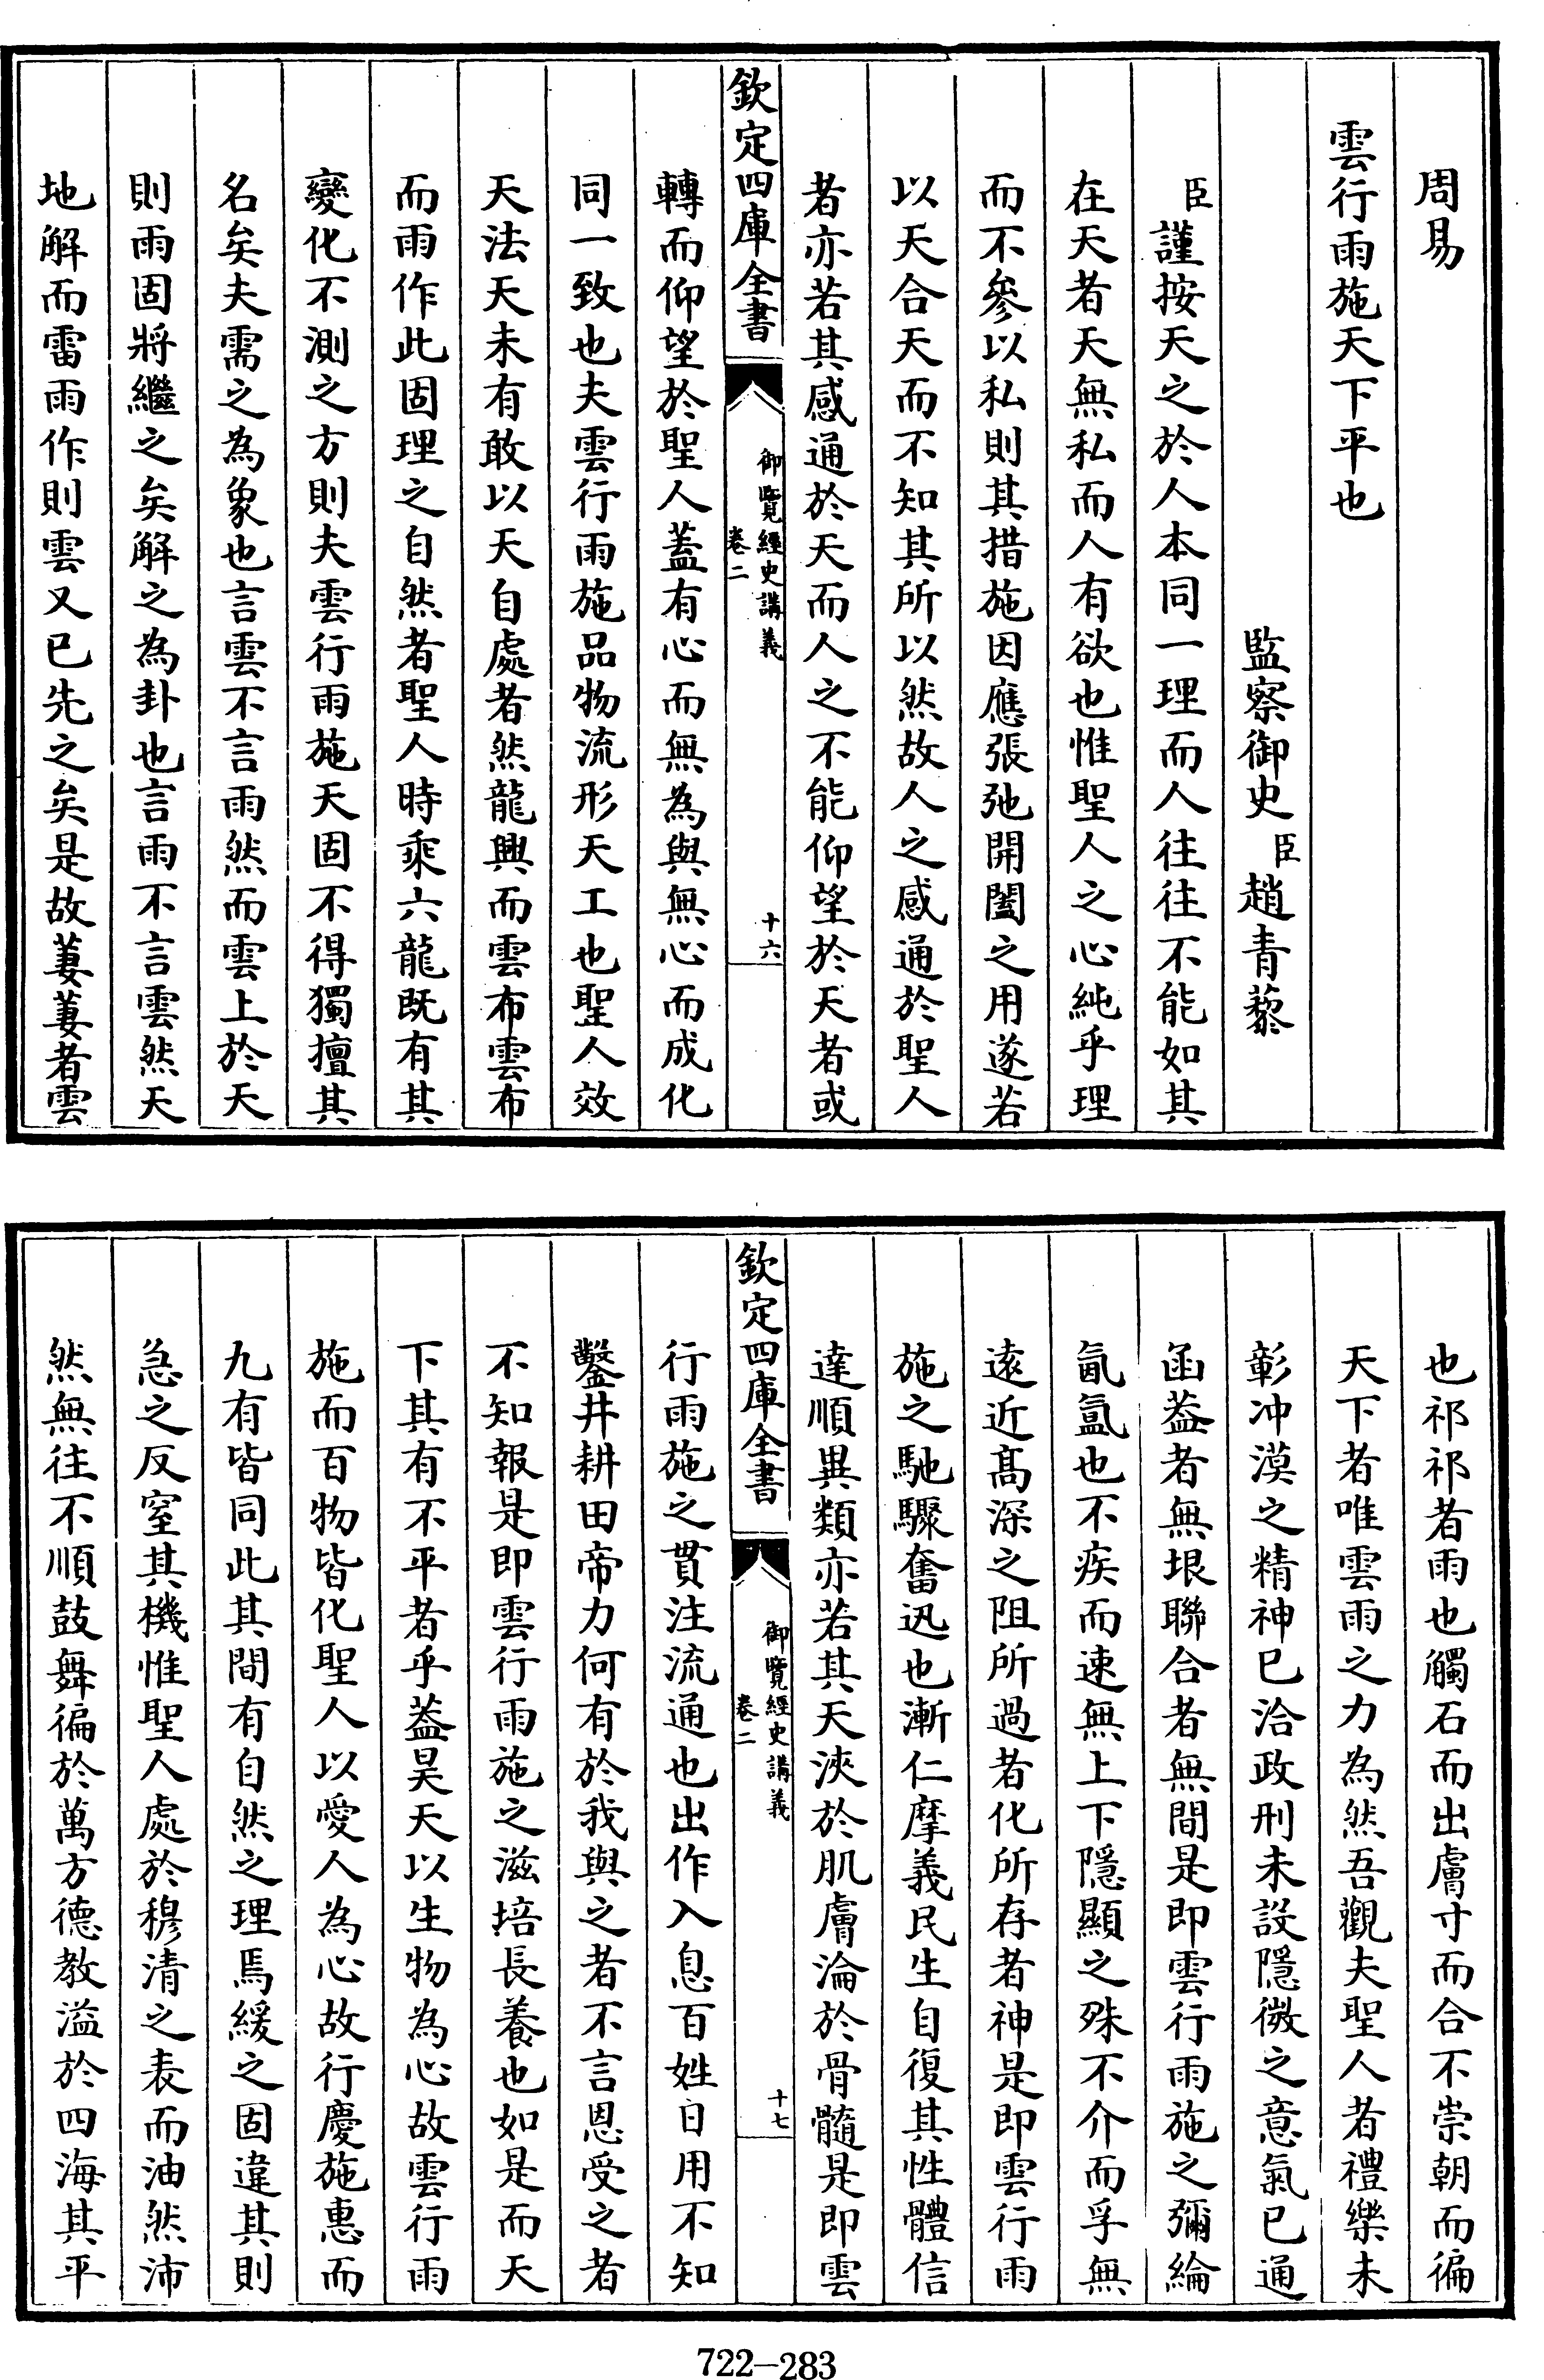 周易
雲行雨施天下平也
監察御史臣趙青藜
臣謹按天之於人本同一理而人往往不能如其
在天者天無私而人有欲也惟聖人之心純乎理
而不參以私則其措施因應張弛開闔之用遂若
以天合天而不知其所以然故人之感通於聖人
者亦若其感通於天而人之不能仰望於天者或
欽定四庫全書
御覽經史講義
卷二
十六
轉而仰望於聖人蓋有心而無為與無心而成化
同一致也夫雲行雨施品物流形天工也聖人效
天法天未有敢以天自處者然龍興而雲布雲布
而雨作此固理之自然者聖人時乘六龍既有其
變化不測之方則夫雲行雨施天固不得獨擅其
名矣夫需之為象也言雲不言雨然而雲上於天
則雨固將繼之矣解之為卦也言雨不言雲然天
地解而雷雨作則雲又已先之矣是故萋萋者雲
也祁祁者雨也觸石而出膚寸而合不崇朝而徧
天下者唯雲雨之力為然吾觀夫聖人者禮樂未
彰冲漠之精神已洽政刑未設隱微之意氣已通
函蓋者無垠聯合者無間是即雲行雨施之彌綸
氤氳也不疾而速無上下隱顯之殊不介而孚無
遠近高深之阻所過者化所存者神是即雲行雨
施之馳驟奮迅也漸仁摩義民生自復其性體信
達順異類亦若其天浹於肌膚淪於骨髓是即雲
欽定四庫全書
御覽經史講義
卷二
十七
行雨施之貫注流通也出作入息百姓日用不知
鑿井耕田帝力何有於我與之者不言恩受之者
不知報是即雲行雨施之滋培長養也如是而天
下其有不平者乎蓋昊天以生物為心故雲行雨
施而百物皆化聖人以愛人為心故行慶施惠而
九有皆同此其間有自然之理焉緩之固違其則
急之反窒其機惟聖人處於穆清之表而油然沛
然無往不順鼓舞徧於萬方德教溢於四海其平
722-283